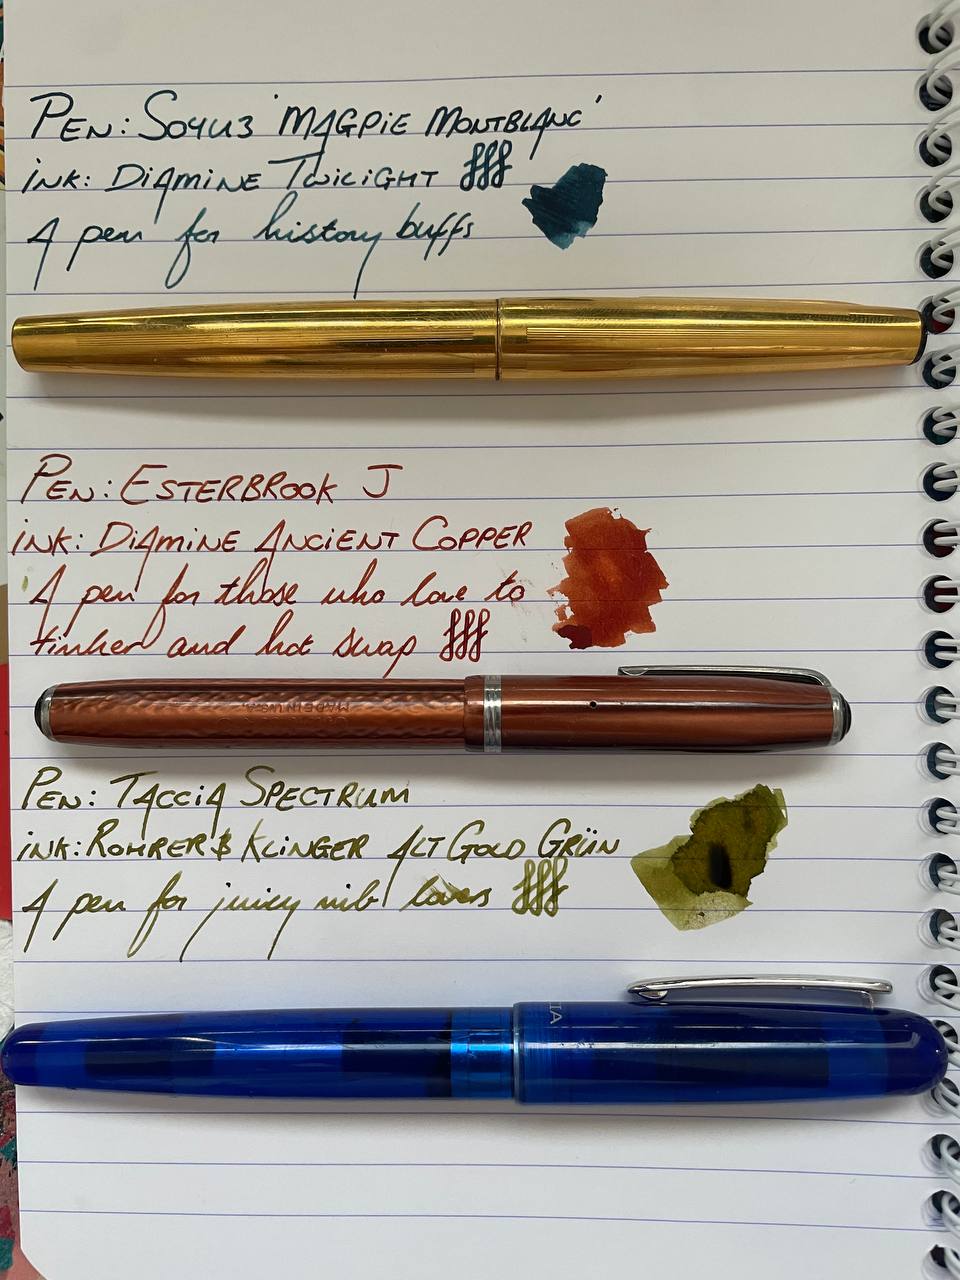 PEN: SOYU3 'MAGPIE MONTBLANC'
INK: DIAMINE TWILIGHT
A pen for history buffs
PEN: ESTERBROOK J
INK: DIAMINE ANCIENT COPPER
A pen for those who love to
tinker and hot swap
MADE IN U.S.A.
PEN: TACCIA SPECTRUM
INK: ROHRER & KLINGER ALT GOLD GRÜN
A pen for juicy nib lovers